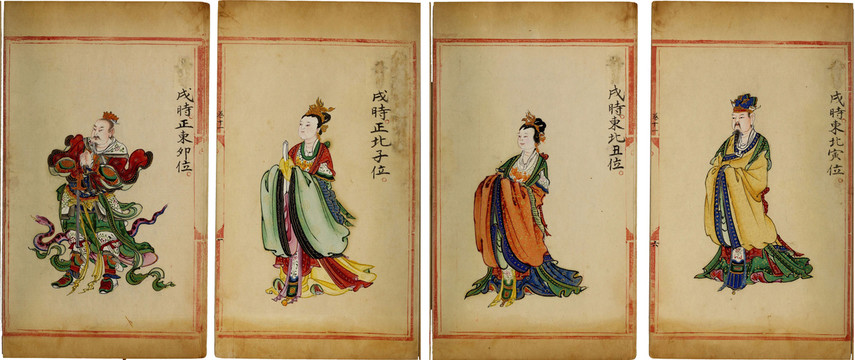 戌時正東卯位
戌時正北子位
戌時東北丑位
戌時東北寅位